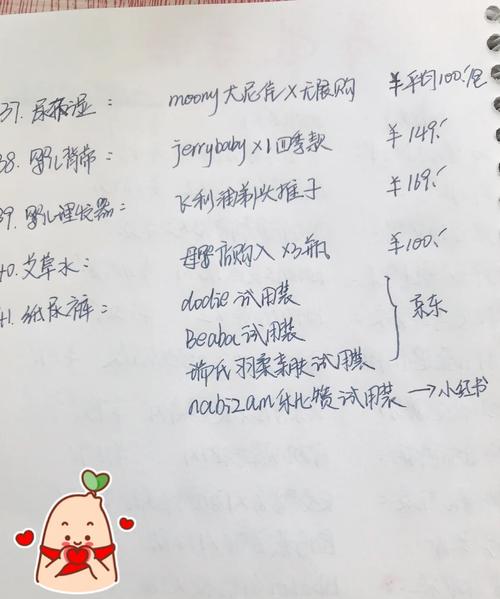 37. 尿布湿： moony 大尼信 X 无限购 ¥平均100/包
38. 婴儿背带： jerrybaby x1 四季款 ¥149.-
39. 婴儿理发器： 飞利浦剃头推子 ¥169.-
40. 艾草水： 母婴店购入 x3瓶 ¥100.-
41. 纸尿裤： dodie 试用装
Beaba 试用装
瑞氏羽柔亲肤试用装
京东
nabizam 试用装 → 小红书